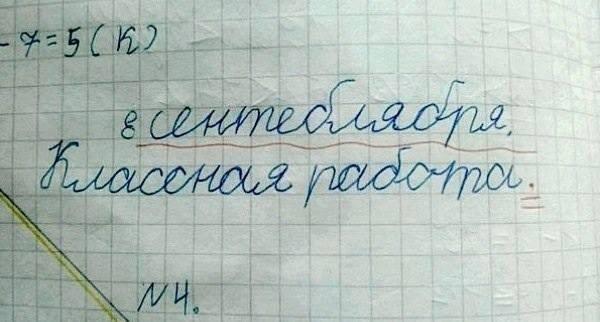 - 7 = 5 ( К )
8 сентеблября.
Классная работа.
№ 4.